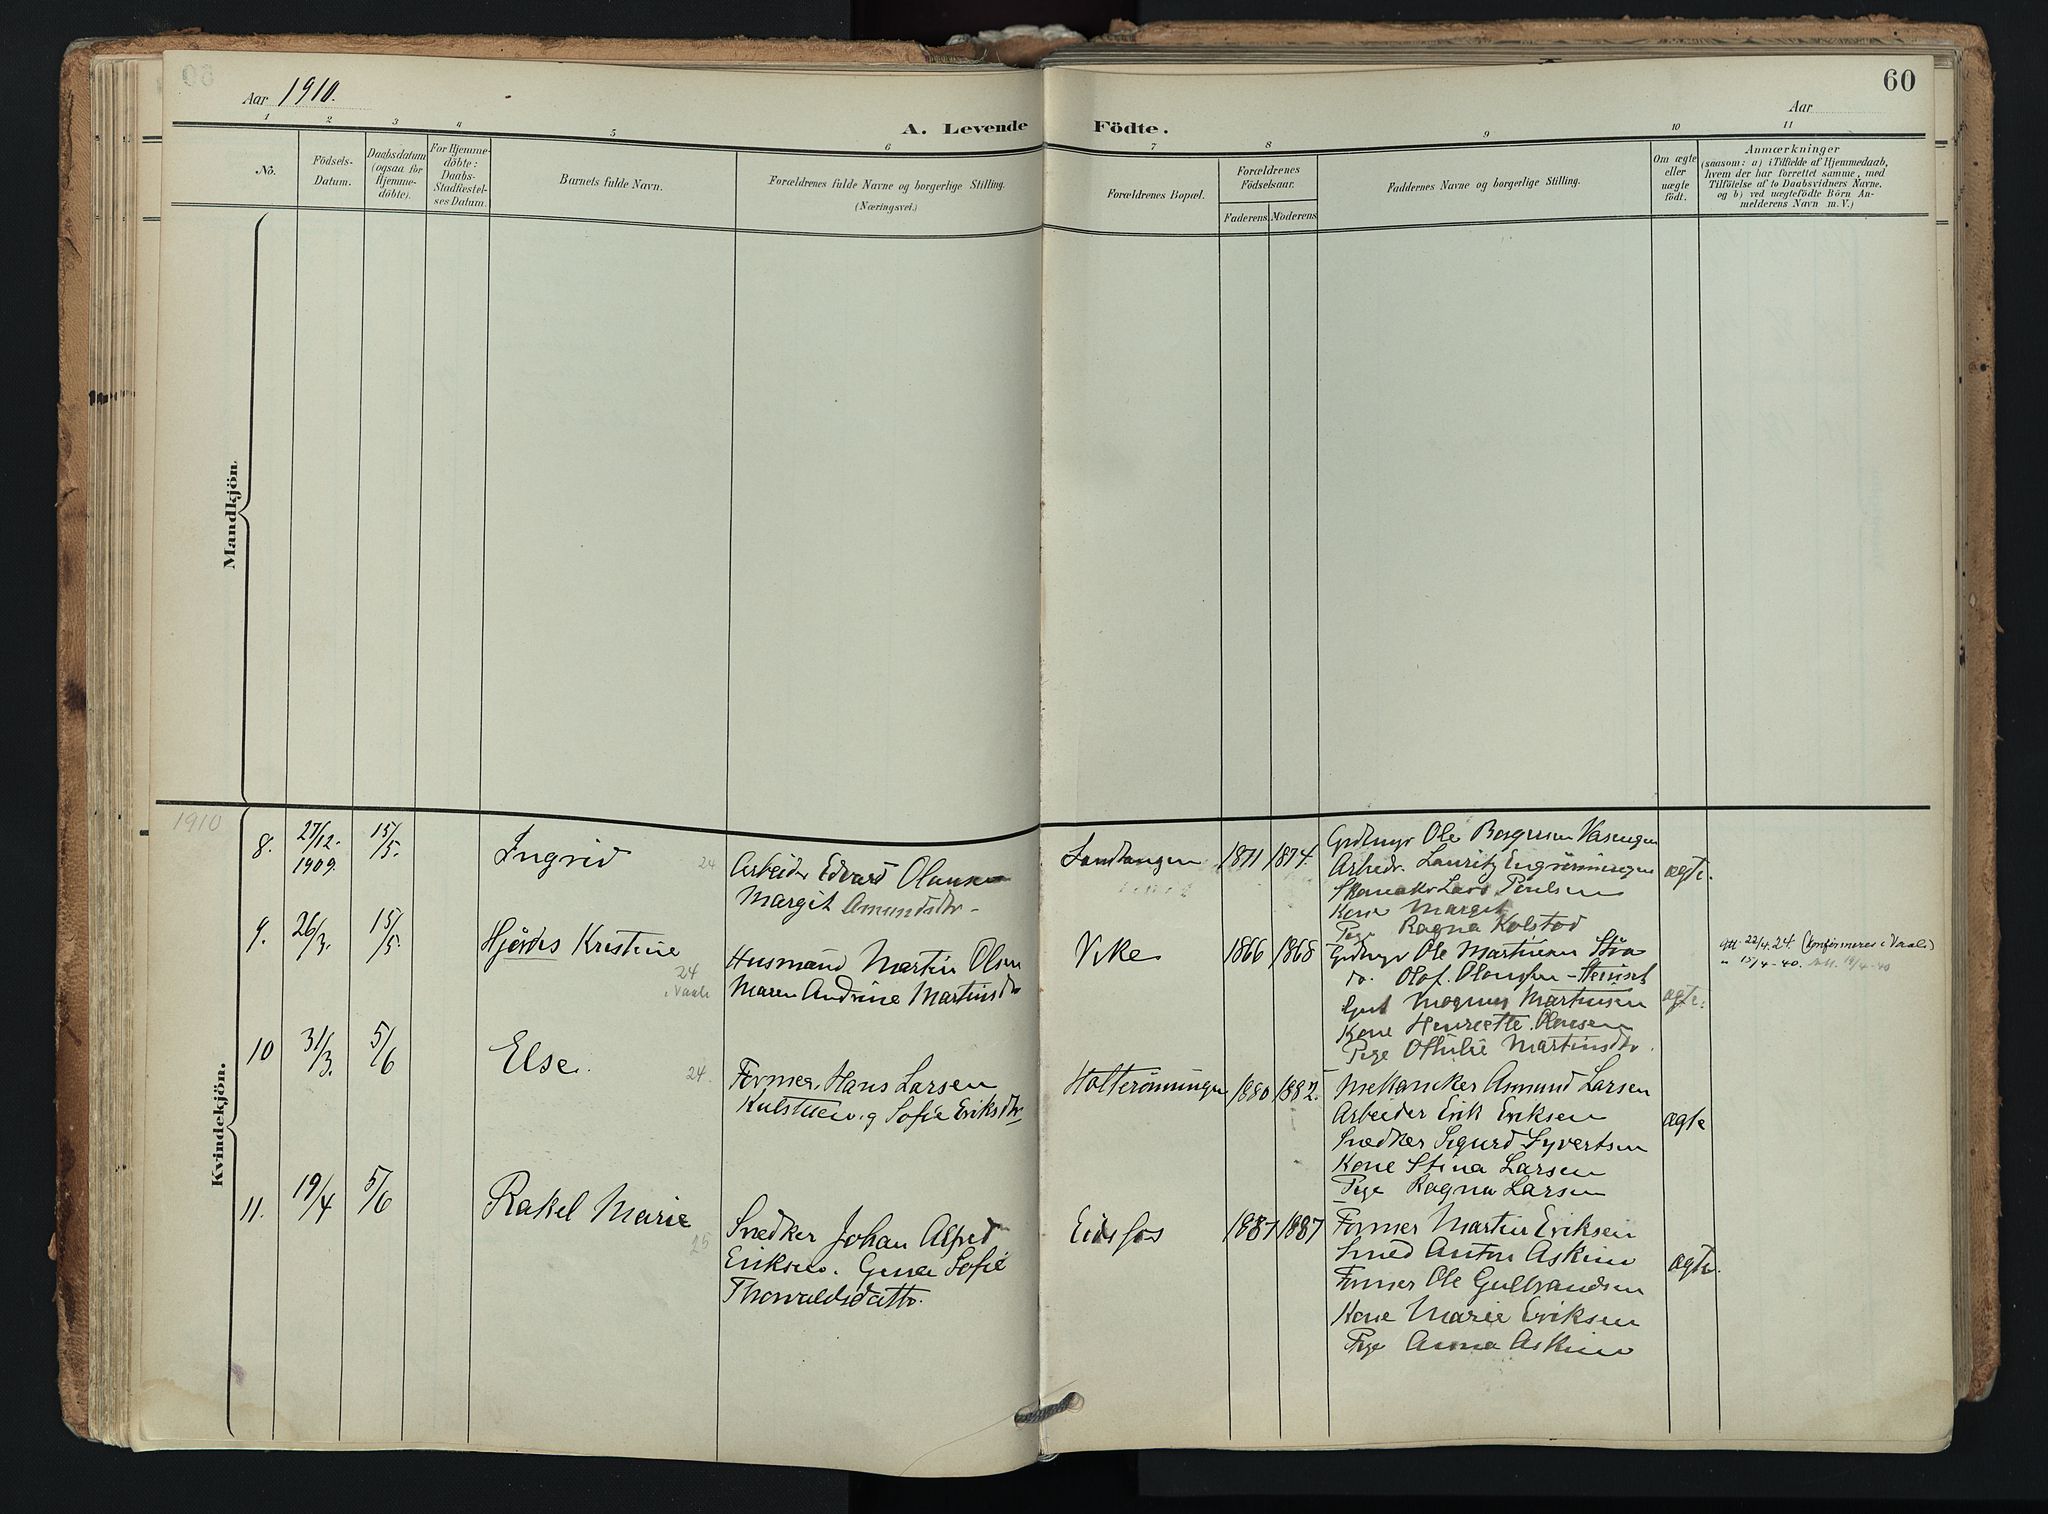 Aar 1910.
60
Aar
A. Levende Födte.
1 2 3 4 5 6 7 8 9 10 11
No.
Födsels-
Datum.
Daabsdatum
(ogsaa for
Hjemme-
döbte).
For Hjemme-
döbte:
Daabs-
Stadfæstel-
ses Datum.
Barnets fulde Navn.
Forældrenes fulde Navne og borgerlige Stilling.
(Næringsvei.)
Forældrenes Bopæl.
Forældrenes
Födselsaar.
Faderens Moderens
Faddernes Navne og borgerlige Stilling.
Om ægte
eller
uægte
født.
Anmærkninger
(saasom: a) i Tilfælde af Hjemmedaab,
hvem der har forrettet samme, med
Tilföielse af to Daabsvidners Navne.
og b) ved uægtefödte Börn An-
melderens Navn m. V.)
Mandkjön.
Kvindekjön.
1910
8.
27/12.
1909.
15/5.
Ingrid
24
Arbeider Edvard Olausen
Margit Amundsdtr
Sandtangen
1871 1874.
Ole Borgersen Vasengen
Arbedr. Lauritz Engrönningen
Skomaker Lars Poulsen
Kone Margit
Pige Ragna Kolstad
ægte.
9.
26/3.
15/5.
Hjördis Kristine
24
i Vaale
Husmand Martin Olsen
Maren Andrine Martinsdtr
Vike
1866 1868
Ole Martinsen
do. Olaf
Magnus Martinsen
Kone Henriette Olausen
Pige Othilie Martinsdtr.
ægte.
att. 22/4.24. (konfirmeres i Vaale)
" 15/4-40.
10
31/3.
5/6
Else.
24.
Former Hans Larsen
Kulstuen og Sofie Eriksdtr
Holterönningen
1880 1882.
Mekaniker Amund Larsen
Arbeider Erik Eriksen
Snedker Sigurd Syvertsen
Kone Stina Larsen
Pige Ragna Larsen
ægte
11.
19/4
5/6
Rakel Marie
25
Snedker Johan Alfred
Eriksen. Gina Sofie
Thorvaldsdatter.
Eidsfos
1887 1887
Former Martin Eriksen
Smed Anton Askim
Former Ole Gulbrandsen
Kone Marie Eriksen
Pige Anna Askim
ægte.